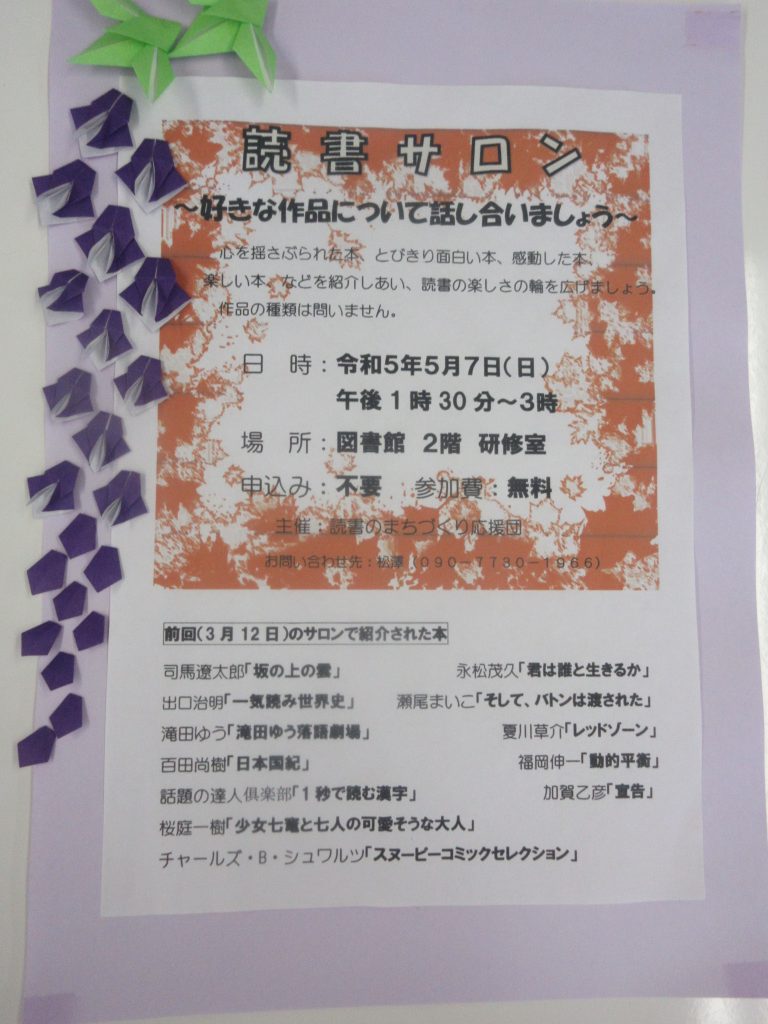 読書サロン
～好きな作品について話し合いましょう～
心を揺さぶられた本、とびきり面白い本、感動した本、
楽しい本、などを紹介しあい、読書の楽しさの輪を広げましょう。
作品の種類は問いません。
日 時：令和5年5月7日(日)
午後1時30分～3時
場 所：図書館 2階 研修室
申込み：不要 参加費：無料
主催：読書のまちづくり応援団
お問い合わせ先：松澤（090-7730-1966）
前回(3月12日)のサロンで紹介された本
司馬遼太郎「坂の上の雲」 永松茂久「君は誰と生きるか」
出口治明「一気読み世界史」 瀬尾まいこ「そして、バトンは渡された」
滝田ゆう「滝田ゆう落語劇場」 夏川草介「レッドゾーン」
百田尚樹「日本国紀」 福岡伸一「動的平衡」
話題の達人倶楽部「1秒で読む漢字」 加賀乙彦「宣告」
桜庭一樹「少女七竈と七人の可愛そうな大人」
チャールズ・B・シュワルツ「スヌーピーコミックセレクション」